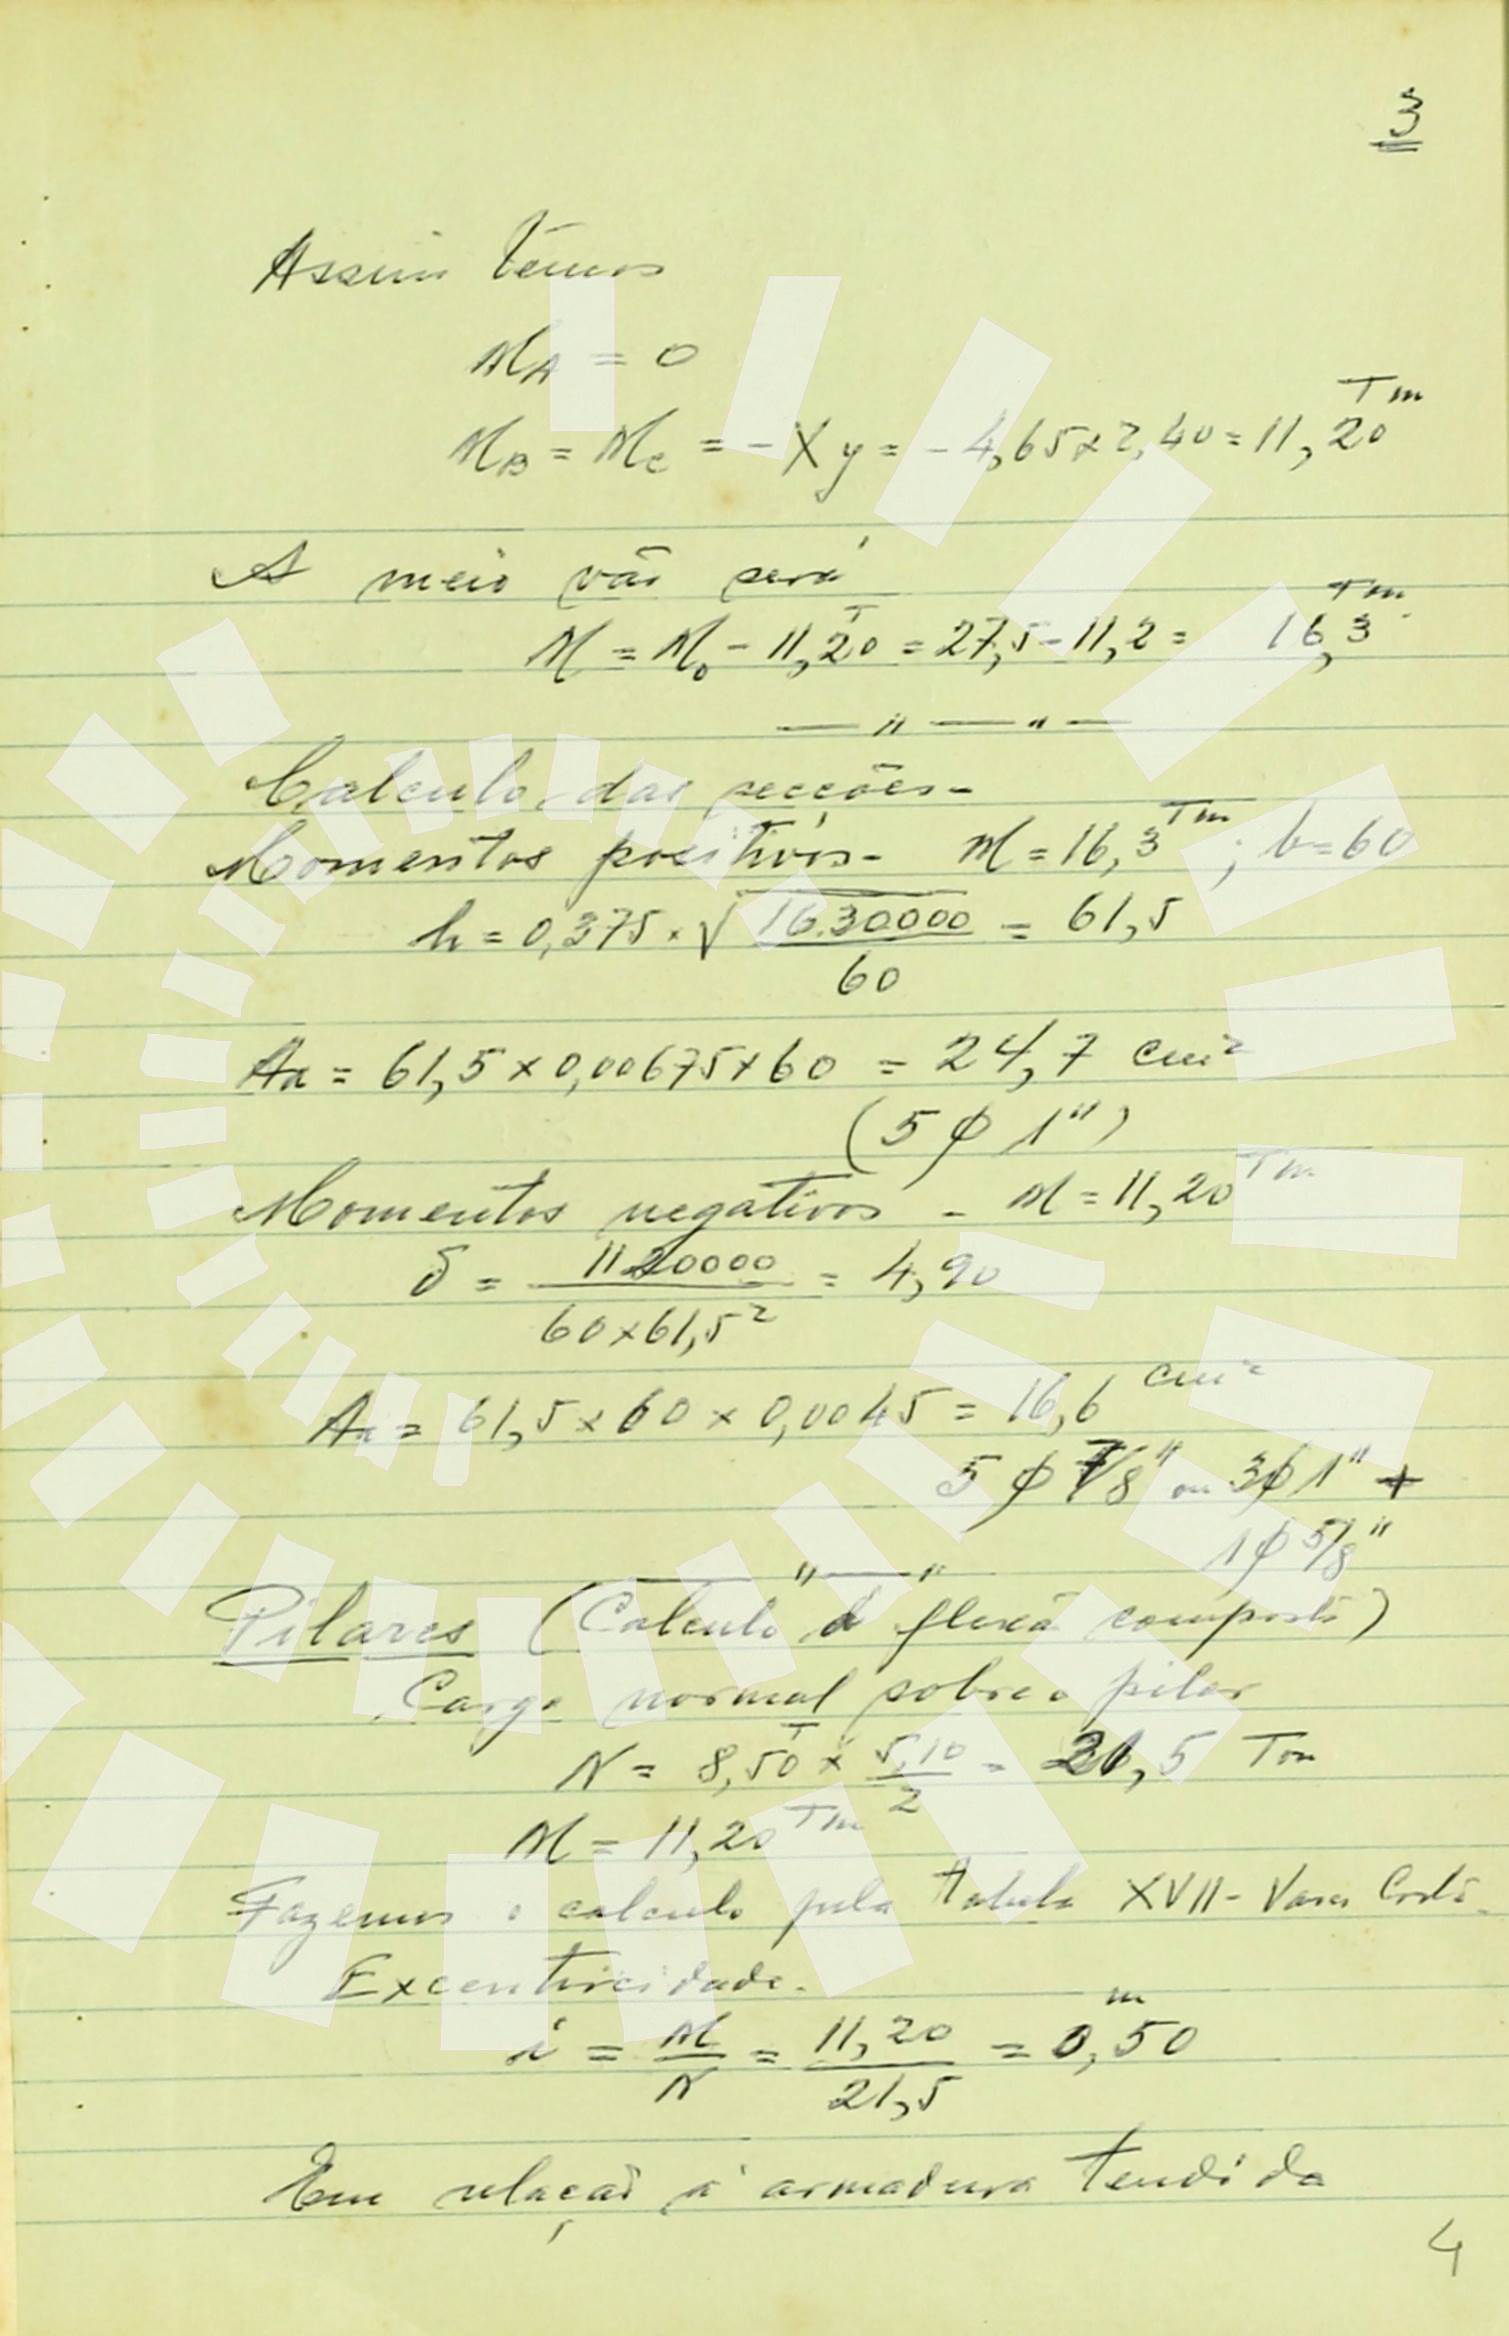 3
Assim temos
M_A = 0
M_B = M_C = - X y = - 4,65 x 2,40 = 11,20 Tm
A meio vão será
M = M_0 - 11,20 T = 27,5 - 11,2 = 16,3 Tm
— " — " —
Calculo das secções -
Momentos positivos - M = 16,3 Tm ; b = 60
h = 0,375 x √ 1630000 / 60 = 61,5
Aa = 61,5 x 0,00675 x 60 = 24,7 cm²
(5 φ 1")
Momentos negativos - M = 11,20 Tm
δ = 1120000 / 60 x 61,5² = 4,90
Aa = 61,5 x 60 x 0,0045 = 16,6 cm²
5 φ 7/8" ou 3φ 1" +
1φ 5/8"
" — "
Pilares (Calculo à flexão composta)
Carga normal sobre o pilar
N = 8,50 T x 5,10 / 2 = 21,5 Ton
M = 11,20 Tm
Fazemos o calculo pela tabela XVII - Costa
Excentricidade.
i = M / N = 11,20 / 21,5 = 0,50 m
Em relação à armadura tendida
4